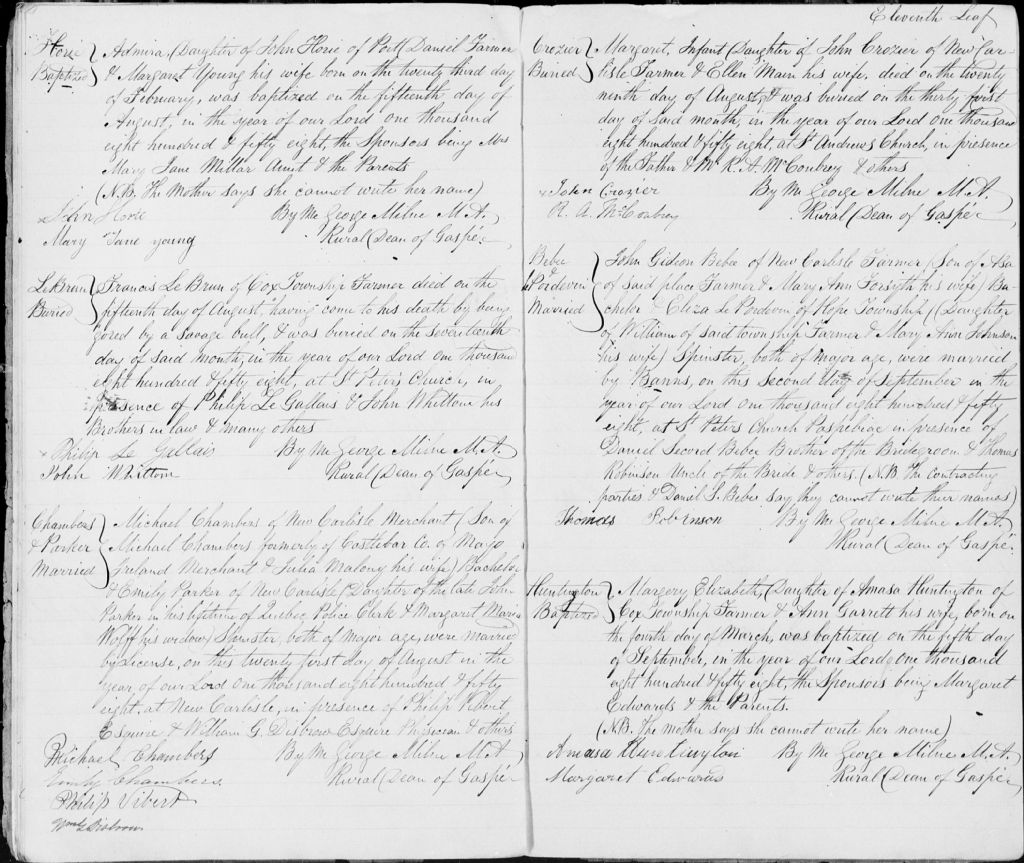 Horie } Admira, (Daughter of John Horie of Port Daniel Farmer
Baptized } & Margaret Young his wife born on the twenty third day
of February, was baptized on the fifteenth day of
August, in the year of our Lord one thousand
eight hundred & fifty eight, the Sponsors being Mrs
Mary Jane Millar Aunt & the Parents
(N.B. The Mother says she cannot write her name)
x John Horie By Me George Milne M.A.
Mary Jane young Rural Dean of Gaspé.
LeBrun } Francis Le Brun of Cox Township Farmer died on the
Buried } fifteenth day of August, having come to his death by being
gored by a savage bull, & was buried on the seventeenth
day of said month, in the year of our Lord one thousand
eight hundred & fifty eight, at St Peter's Church, in
presence of Philip Le Gallais & John Whittom his
Brothers in law & many others
x Philip Le Gellais By Me George Milne M.A.
John Whittom Rural Dean of Gaspé
Chambers } Michael Chambers of New Carlisle Merchant (Son of
& Parker } Michael Chambers formerly of Castlebar Co. of Mayo
Married } Ireland Merchant & Julia Malony his wife) Bachelor
& Emily Parker of New Carlisle (Daughter of the late John
Parker in his lifetime of Quebec Police Clerk & Margaret Maria
Wolff his widow) Spinster, both of major age, were married
by License, on this twenty first day of August in the
year, of our Lord one thousand eight hundred & fifty
eight, at New Carlisle, in presence of Philip Vibert
Esquire & William G. Disbrow Esquire Physician & others
Michael Chambers By Me George Milne M.A.
Emily Chambers Rural Dean of Gaspé
Philip Vibert
Wm G Disbrow
Eleventh Leaf
Crozier } Margaret, Infant Daughter of John Crozier of New Car-
Buried } lisle Farmer & Ellen Main his wife, died on the twenty
ninth day of August, & was buried on the thirty first
day of said month, in the year of our Lord one thousand
eight hundred & fifty eight, at St Andrews Church, in presence
of the Father & Mr R. A. McConbrey & others
x John Crozier By Me George Milne M.A.
R. A. McConbrey Rural Dean of Gaspé
Bebee } John Gideon Bebee of New Carlisle Farmer (Son of Asa
& Le Pordevin } of said place Farmer & Mary Ann Forsyth his wife) Ba-
Married } chelor & Eliza Le Pordevin of Hope Township (Daughter
of William of said township Farmer & Mary Ann Johnson
his wife) Spinster, both of major age, were married
by Banns, on this second day of September in the
year of our Lord one thousand eight hundred & fifty
eight, at St Peters Church Paspebiac in presence of
Daniel Secord Bebee Brother of the Bridegroom & Thomas
Robinson Uncle of the Bride & others. (N.B. The contracting
parties & Daniel S. Bebee say they cannot write their names)
Thomas Robinson By Me George Milne M.A.
Rural Dean of Gaspé.
Huntington } Margery Elizabeth, Daughter of Amasa Huntington of
Baptized } Cox Township Farmer & Ann Garrett his wife, born on
the fourth day of March, was baptized on the fifth day
of September, in the year of our Lord one thousand
eight hundred & fifty eight, the Sponsors being Margaret
Edwards & the Parents.
(N.B. The mother says she cannot write her name)
Amasa By Me George Milne M.A.
Margaret Edwards Rural Dean of Gaspé